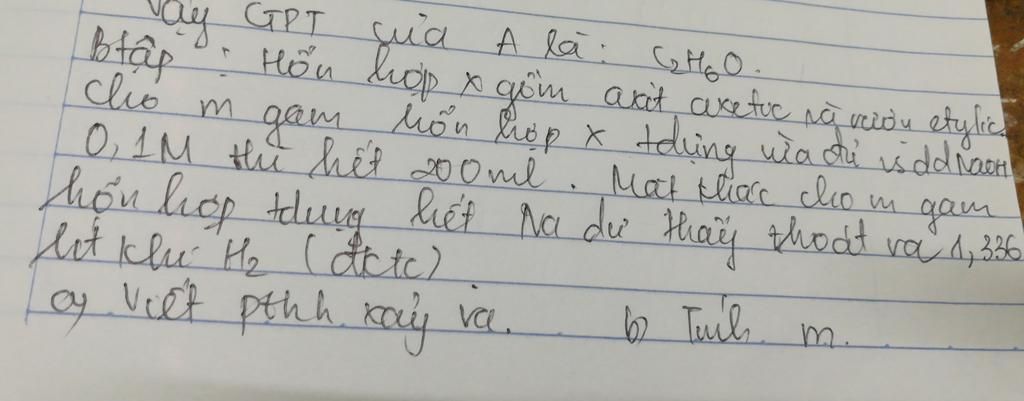 Vậy GPT của A là: C2H6O.
Btập: Hỗn hợp X gồm axit axetic và rượu etylic.
Cho m gam hỗn hợp X tdụng vừa đủ vs dd NaOH
0,1M thì hết 200ml. Mặt khác cho m gam
hỗn hợp tdụng hết Na dư thấy thoát ra 1,336
lít khí H2 (đktc)
a) Viết pthh xảy ra. b) Tính m.